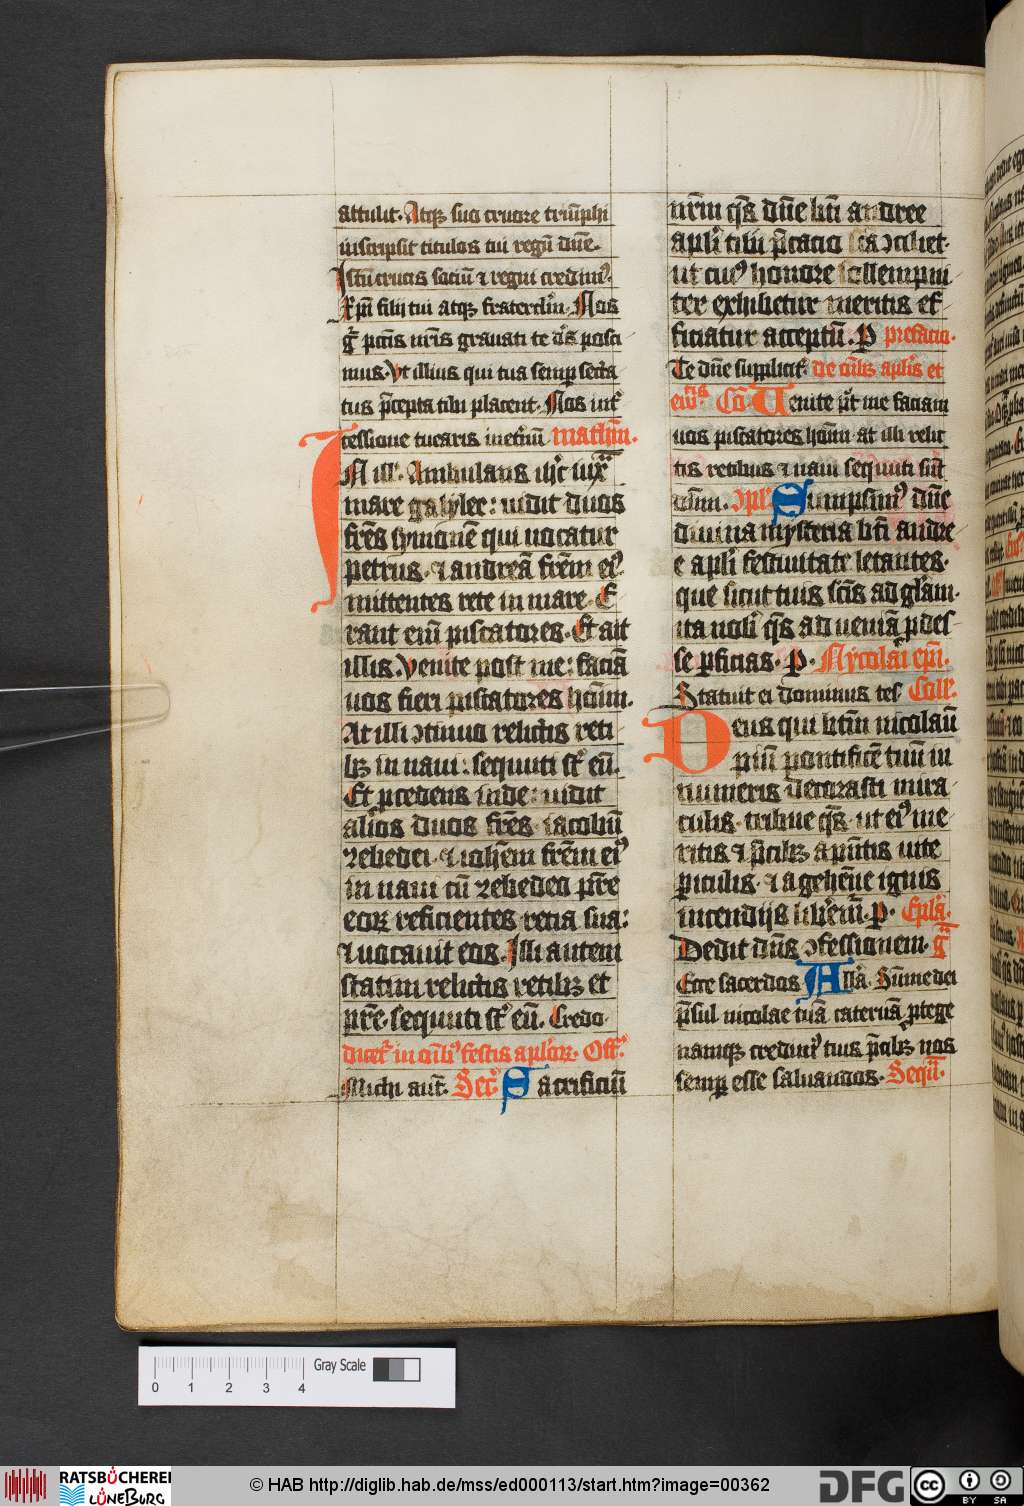 attulit. Atqꝫ suo cruore triūphi
inscripsit titulos tui regū dūe.
Istū crucis sociū ⁊ regni credimꝰ.
Xp̄m filii tui atqꝫ fratercl'm. Nos
petīs nr̄is grauati te dūs posci
mus. Vt illius qui tua semꝑ secta
tus p̄cepta tibi placent. Nos int̄
cessione tucaris inet'nū mathm̄.
IN ill'. Ambulans ih̄c iuxͣ
mare galylee: uidit duos
fr̄es symonē qui uocatur
petrus. ⁊ andreā fr̄em eiꝰ.
mittentes rete in mare. E
rant em̄ piscatores. Et ait
illis. Venite post me: faciā
uos fieri piscatores hom̄m.
At illi ↄtinuo relictis reti
bꝫ in naui: sequuti st̄ eū.
Et ꝓcedens inde: uidit
alios duos fr̄es. iacobū
zebedei. ⁊ ioh̄em fr̄em eiꝰ
in naui cū zebedeo pr̄e
eoꝝ reficientes retia sua:
⁊ uocauit eos. Illi autem
statim relictis retibꝫ et
pr̄e. sequuti st̄ eū. Credo.
dicet' in om̄ibꝰ festis apl'oꝝ. Off'.
Michi aut̄. Sec'. Sacrificiū
nr̄m qs̄ dn̄e bt̄i andree
apl'i tibi p̄catio sc̄a ↄciliet.
ut cuiꝰ honore sollempni
ter exhibetur meritis ef
ficiatur acceptū. P prefacio.
Te dn̄e supplicit'. de om̄ibꝫ apl'is et
ewͣg Cō Uenite p̄t me faciam
uos piscatores hom̄m. at illi relic
tis retibus ⁊ naui sequuti sūt
dn̄m. ↄpl' Sumpsimꝰ dn̄e
diuina mysteria bt̄i andre
e apl'i festiuitate letantes.
que sicut tuis sc̄is ad gl'am.
ita nob' qs̄ ad ueniā ꝓdes
se ꝑficias. P. Nycolai ep̄i.
Statuit ei dominus tes' Coll'.
Deus qui bt̄m nicolaū
piū pontificē tuū in
numeris decorasti mira
culis. tribue qs̄. ut eiꝰ me
ritis ⁊ p̄cibꝫ a pn̄tis uite
ꝑiculis. ⁊ a gehēne ignis
incendijs lib'em̄. P. Epl'a.
Dedit dn̄s ↄfessionem. gͣ
Ecce sacerdos Allā. Sūme dei
p̄sul nicolae tuā cateruā ꝓtege
namqꝫ credimꝰ tuis p̄cibꝫ nos
semꝑ esse saluandos. Seqū.
0 1 2 3 4
Gray Scale
RATSBÜCHEREI LÜNEBURG
© HAB http://diglib.hab.de/mss/ed000113/start.htm?image=00362
DFG
cc BY SA